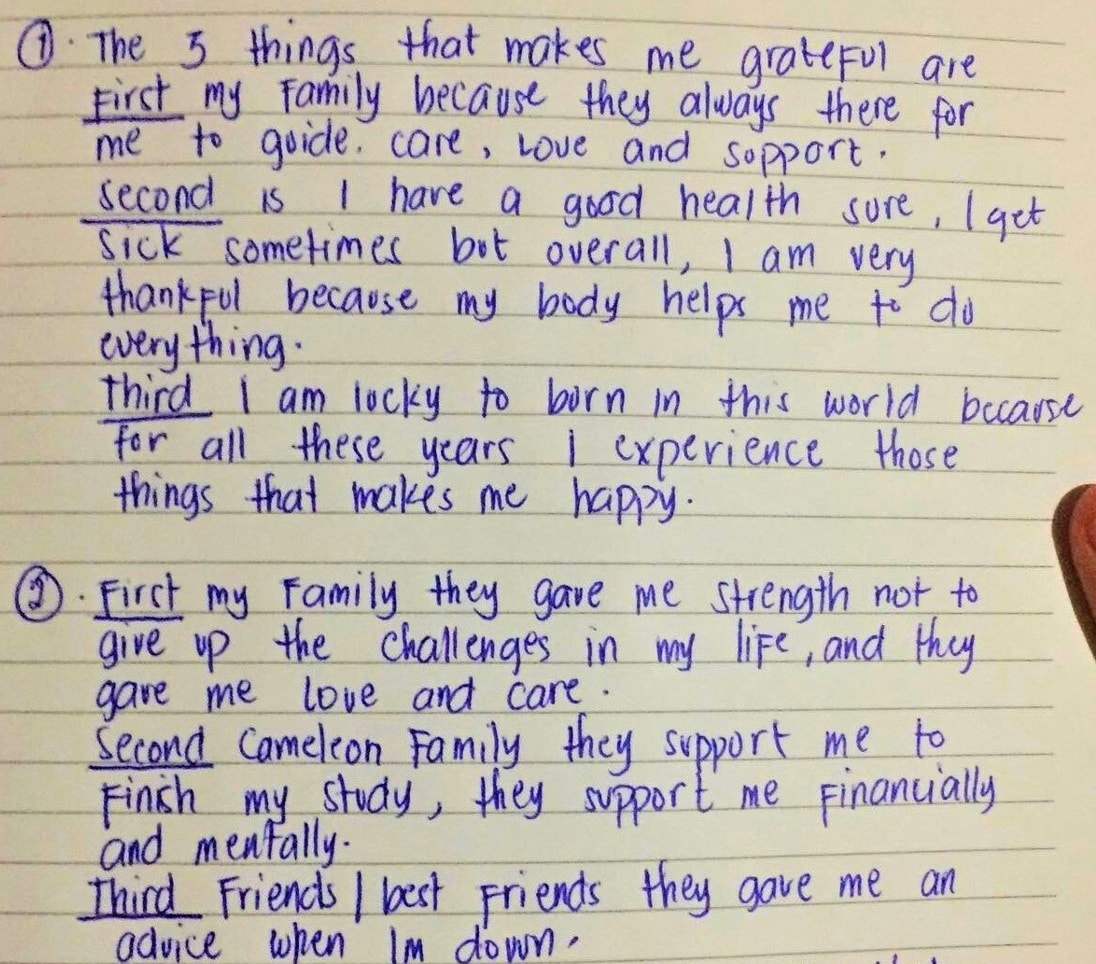 ①. The 3 things that makes me grateful are
First my Family because they always there for
me to guide. care, Love and support.
Second is I have a good health sure, I get
Sick sometimes but overall, I am very
thankful because my body helps me to do
everything.
Third I am lucky to born in this world because
for all these years I experience those
things that makes me happy.
②. First my Family they gave me strength not to
give up the challenges in my life, and they
gave me love and care.
Second Cameleon Family they support me to
Finish my study, they support me Financially
and mentally.
Third Friends / best Friends they gave me an
advice when Im down.